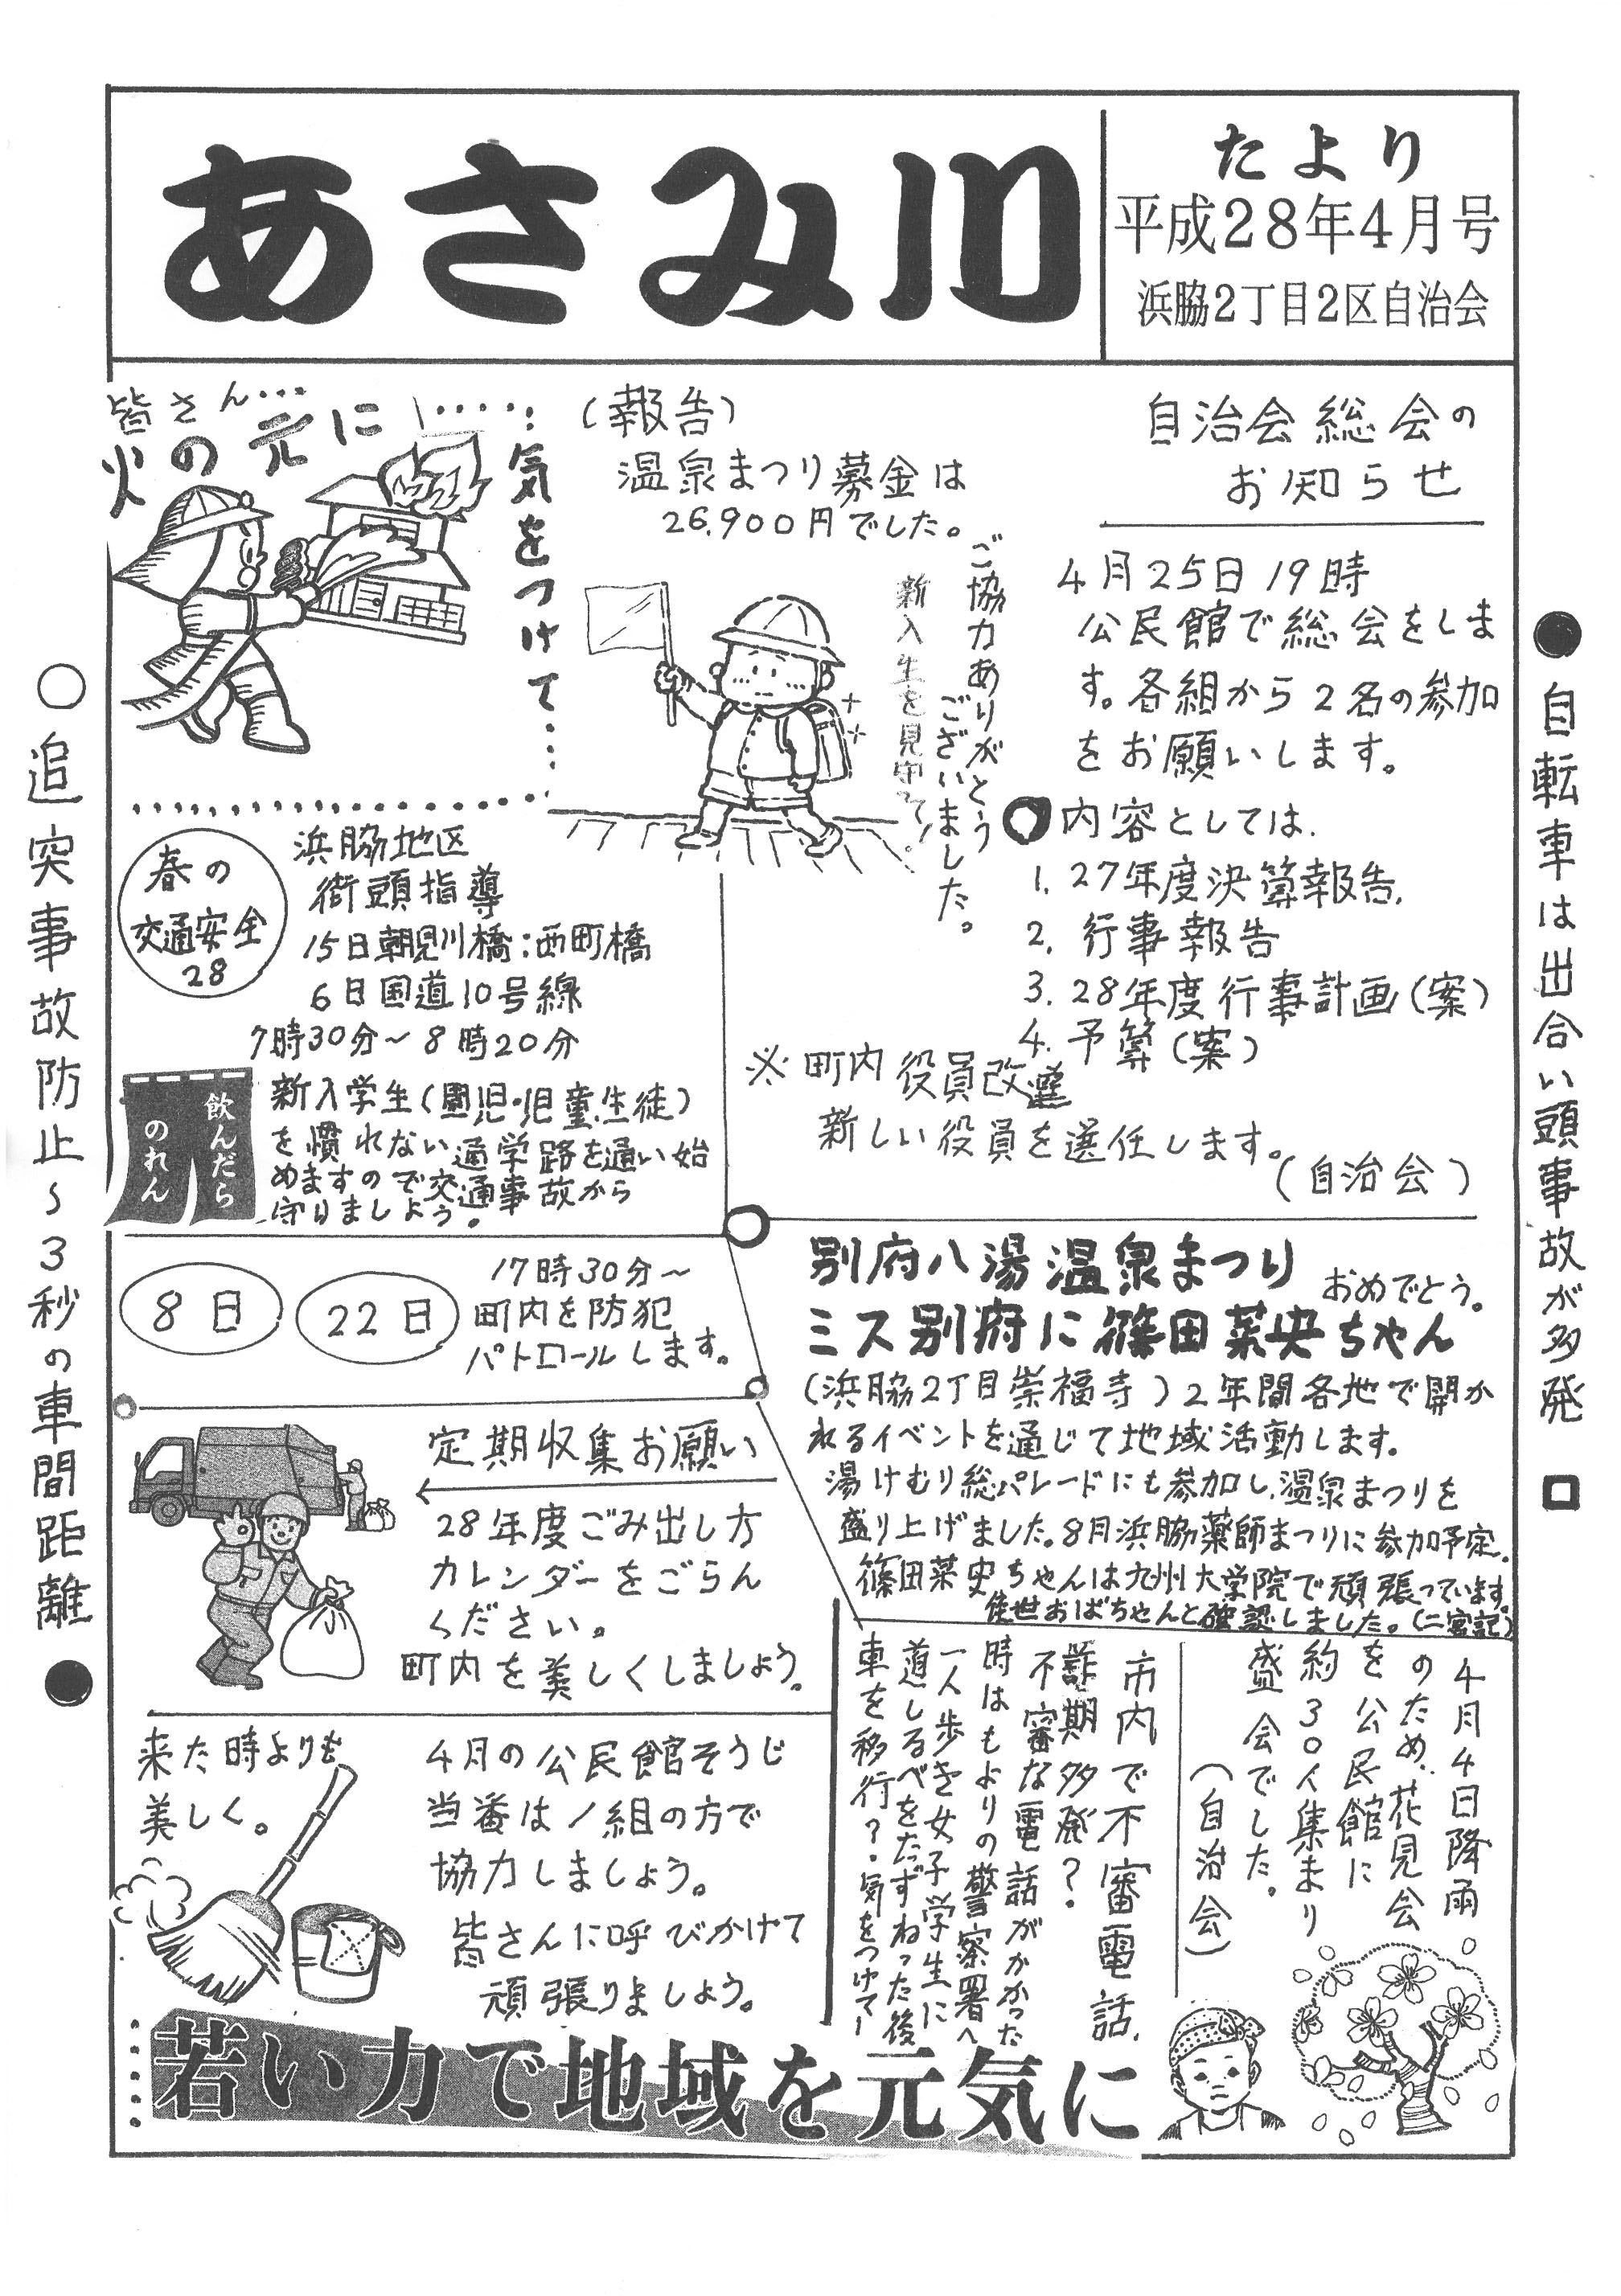 あさみ川
たより
平成28年4月号
浜脇2丁目2区自治会
皆さん…
火の元に
気をつけて…
(報告)
温泉まつり募金は
26,900円でした。
ご協力ありがとう
ございました。
新入生を見守って!
自治会総会の
お知らせ
4月25日19時
公民館で総会をしま
す。各組から2名の参加
をお願いします。
内容としては、
1. 27年度決算報告、
2. 行事報告
3. 28年度行事計画(案)
4. 予算(案)
※町内役員改選
新しい役員を選任します。
(自治会)
春の
交通安全
28
浜脇地区
街頭指導
15日朝見川橋:西町橋
6日国道10号線
7時30分~8時20分
飲んだら
のれん
新入学生(園児・児童、生徒)
を慣れない通学路を通い始
めますので交通事故から
守りましよう。
8日
22日
17時30分~
町内を防犯
パトロールします。
別府八湯温泉まつり
おめでとう。
ミス別府に篠田菜央ちゃん
(浜脇2丁目崇福寺)2年間各地で開か
れるイベントを通じて地域活動します。
湯けむり総パレードにも参加し、温泉まつりを
盛り上げました。8月浜脇薬師まつりに参加予定。
篠田菜史ちゃんは九州大学院で頑張っています。
佳世おばちゃんと確認しました。(二宮記)
定期収集お願い
28年度ごみ出し方
カレンダーをごらん
ください。
町内を美しくしましょう。
来た時よりも
美しく。
4月の公民館そうじ
当番は1組の方で
協力しましょう。
皆さんに呼びかけて
頑張りましょう。
4月4日降雨
のため、花見会
を公民館に
約30人集まり
盛会でした。
(自治会)
市内で不審電話、
詐期多発?
不審な電話がかかった
時はもよりの警察署へ
一人歩き女子学生に
道しるべをたずねった後
車を移行?気をつけて!
若い力で地域を元気に
○追突事故防止~3秒の車間距離●
●自転車は出合い頭事故が多発